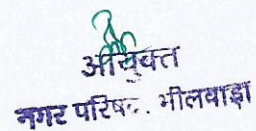 आयुक्त
नगर परिषद, भीलवाड़ा